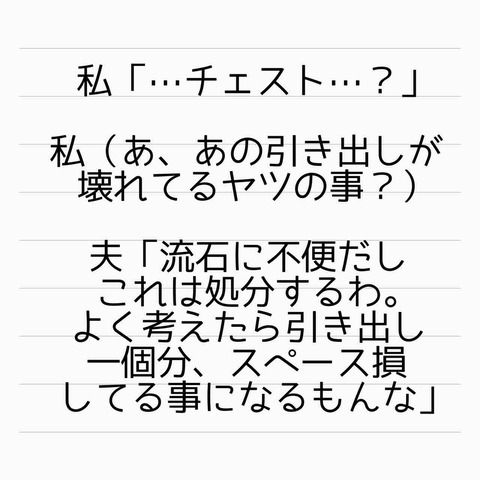 私「…チェスト…？」
私（あ、あの引き出しが
壊れてるヤツの事？）
夫「流石に不便だし
これは処分するわ。
よく考えたら引き出し
一個分、スペース損
してる事になるもんな」